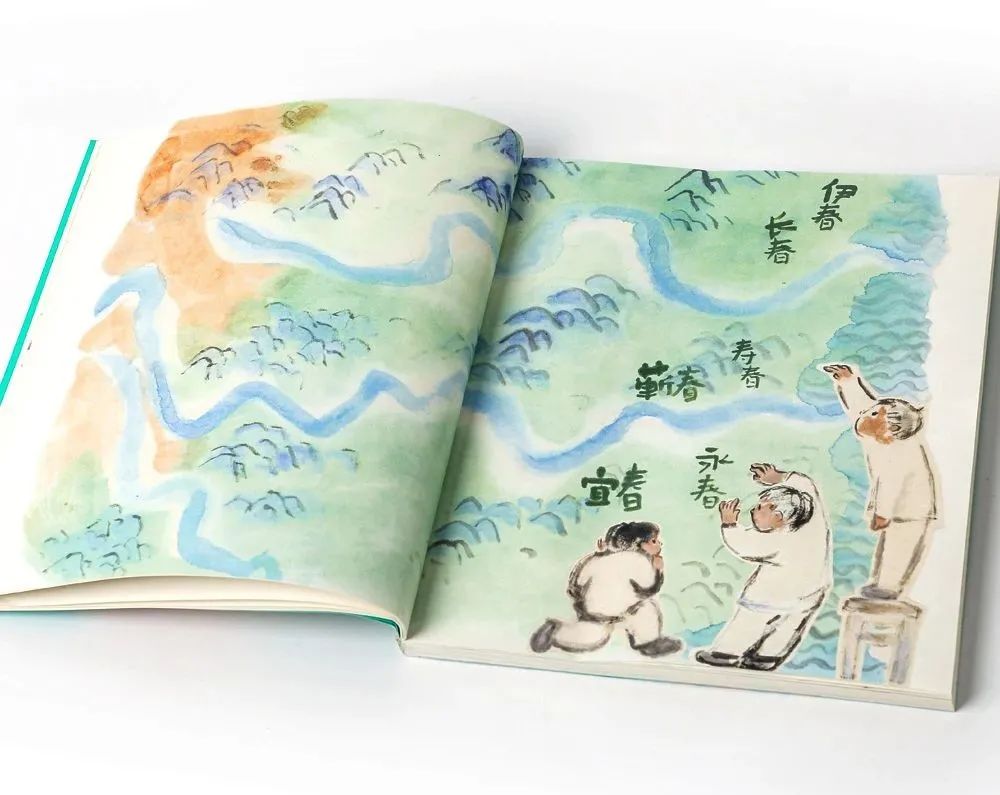 伊春
长春
寿春
蕲春
永春
宜春